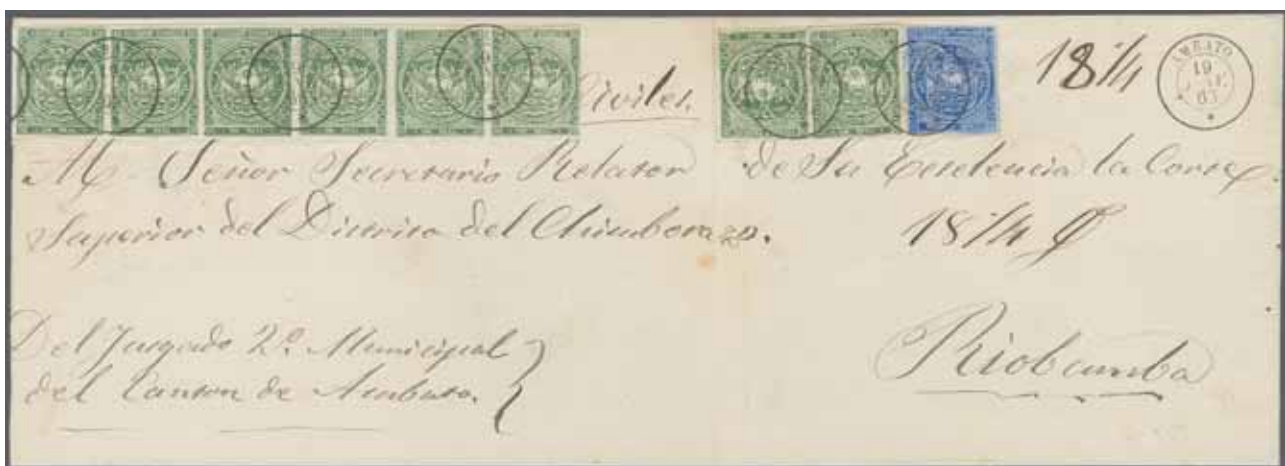 Civiles.
18 1/4
AMBATO
19
63
Al Señor Secretario Relator de Su Excelencia la Corte
Superior del Distrito del Chimborazo.
18 1/4
Del Juzgado 2º Municipal
del Canton de Ambato.
Riobamba